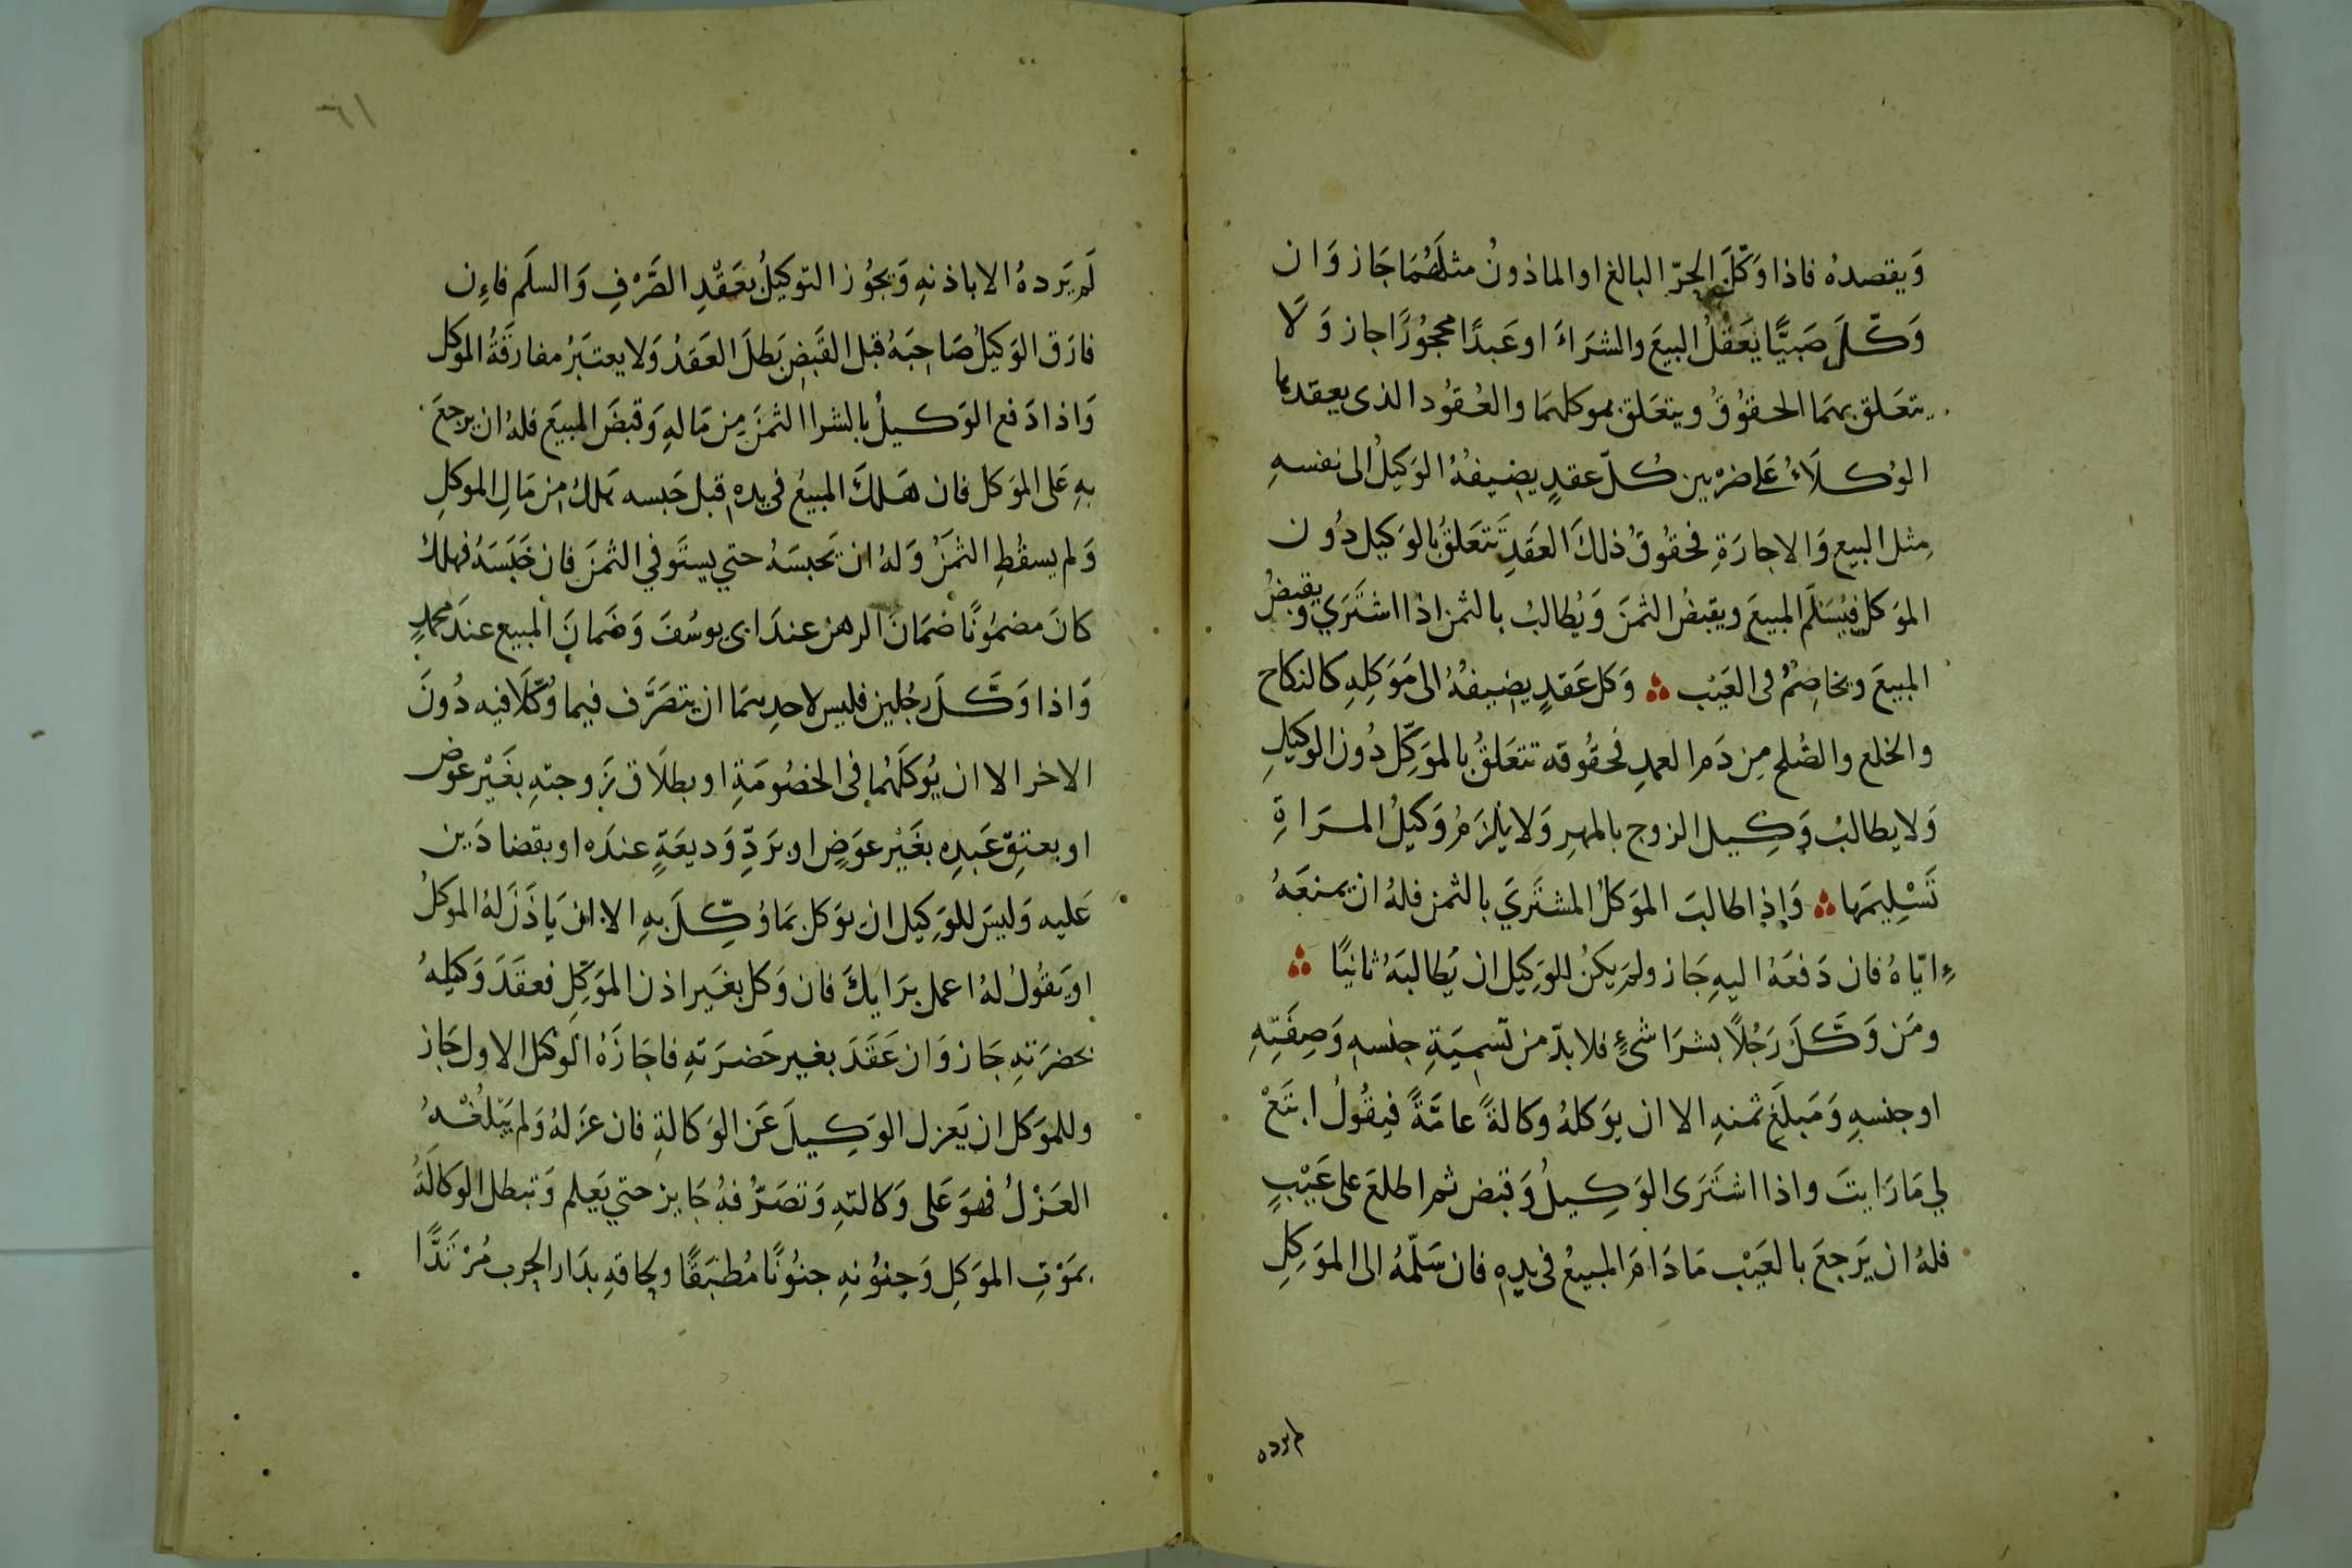 وَيقصدهُ فاذا وَكّلَ الحرّ البالغ او الماذونُ مثلَهُمَا جَاز وَان
وَكّلَ صَبيًّا يَعَقلُ البيعَ والشرَاءَ او عَبدًا محجُورًا جاز وَلَا
يتعَلق بهمَا الحقوُقُ ويتعَلق بموكلهمَا والعُقوُد الذى يعقدها
الوُكلَاءُ عَلى ضرْبين كُلّ عقدٍ يضيفهُ الوَكيلُ الى نفسهِ
مِثل البيع وَالاجارَةِ فحقوُقُ ذلكَ العَقدِ تَتعَلقُ بالوَكيل دُون
الموَكل فيُسَلّم المبيعَ ويقبضُ الثمنَ وَيُطالبُ بالثمن اذا اشتَرَي ويقبضُ
المبيعَ ويخاصِمُ فى العَيْب ۞ وَكل عَقدٍ يضيفهُ الى مَوَكِلِهِ كالنكاح
والخلع والصُلح مِن دَم العمدِ فحقُوقه تتعَلقُ بالموَكِّل دُون الوكيلِ
وَلا يطالبُ وَكِيل الزوج بالمهرِ وَلا يلزَمُ وَكيلُ المرَاةِ
تَسْلِيمَها ۞ وَاِذا طالبَ الموَكلُ المشتَرَيَ بالثمن فلهُ ان يمنعَهُ
ءِايّاهُ فان دَفعَهُ اليهِ جَاز ولم يَكنُ للوَكِيل ان يُطالبَهُ ثانيًا ۞
ومَن وَكَّلَ رَجُلًا بشرَا شىءٍ فلا بدّ من تَسمِيَةِ جنسهِ وَصِفَتِهِ
او جنسهِ وَمَبلَغ ثمنهِ الا ان يوَكلهُ وكالةً عامَّةً فيقُولُ ابتَعْ
لي مَا رَايتَ واذا اشتَرَى الوَكِيلُ وَقبَض ثم اطلعَ على عَيْبٍ
فلهُ ان يَرجعَ بالعَيْب مَا دَامَ المبيعُ فى يدِهِ فان سَلّمهُ الى الموَكِلِ
لم يرده
٦١
لَم يَردهُ الا باذنهِ وَيجُوز التوكيلُ بعَقْدِ الصَّرْفِ وَالسلَم فاءِن
فارَق الوَكيلُ صَاحِبَهُ قبل القَبض بَطلَ العَقدُ وَلا يعتبَرُ مفارقَةُ الموكل
وَاذا دَفع الوَكيلُ بالشرا الثمَنَ مِن مَالهِ وَقبَضَ المبيَع فلهُ ان يرجعَ
بهِ عَلى الموَكل فان هَلكَ المبيعُ فى يدهِ قبل حَبسه هلكَ مِن مَالِ الموكلِ
وَلم يسقُطِ الثمَنُ وَلهُ ان يَحبسَهُ حتي يستَوفي الثمَنَ فان حَبَسَهُ فهلكَ
كانَ مضمُونًا ضَمَانَ الرهن عندَ ابى يوسُفَ وَضَمانَ المبيع عندَ محمدٍ
وَاذا وَكَّلَ رجُلين فليس لاحدِهمَا ان يتصَرَّف فيما وُكّلَا فيه دُونَ
الاخر الا ان يُوكلَهُما فى الخصُومَةِ او بطلَاق زَوجتهِ بغَيْر عوَض
او بعتقِ عَبدِهِ بغَيْر عوَضٍ او برَدِّ وَديعَةٍ عندَه او بقضا دَين
عَليه وَليسَ للوَكِيل ان يوَكل بمَا وُكِّلَ بهِ الا ان يَاذَنَ لهُ الموكلُ
او يَقُولُ لهُ اعمل برَايكَ فان وَكل بغَير اذن الموَكّلِ فعقَدَ وَكيلهُ
بحضرَتهِ جَاز وَان عَقَدَ بغير حَضرَتهِ فاجَازَهُ الوَكيل الاول جَاز
وللموَكل ان يَعزل الوَكِيلَ عَن الوَكالةِ فان عزَلهُ وَلم يَبْلُغْهُ
العَزْلُ فهوَ عَلى وَكالتهِ وَتصَرّفهُ جَايز حتي يَعلم وَتبطل الوَكالَةُ
بمَوْتِ الموَكِل وَجنوُنهِ جنوُنًا مُطبَقًا ولحاقهِ بدَار الحرب مُرْتَدًّا